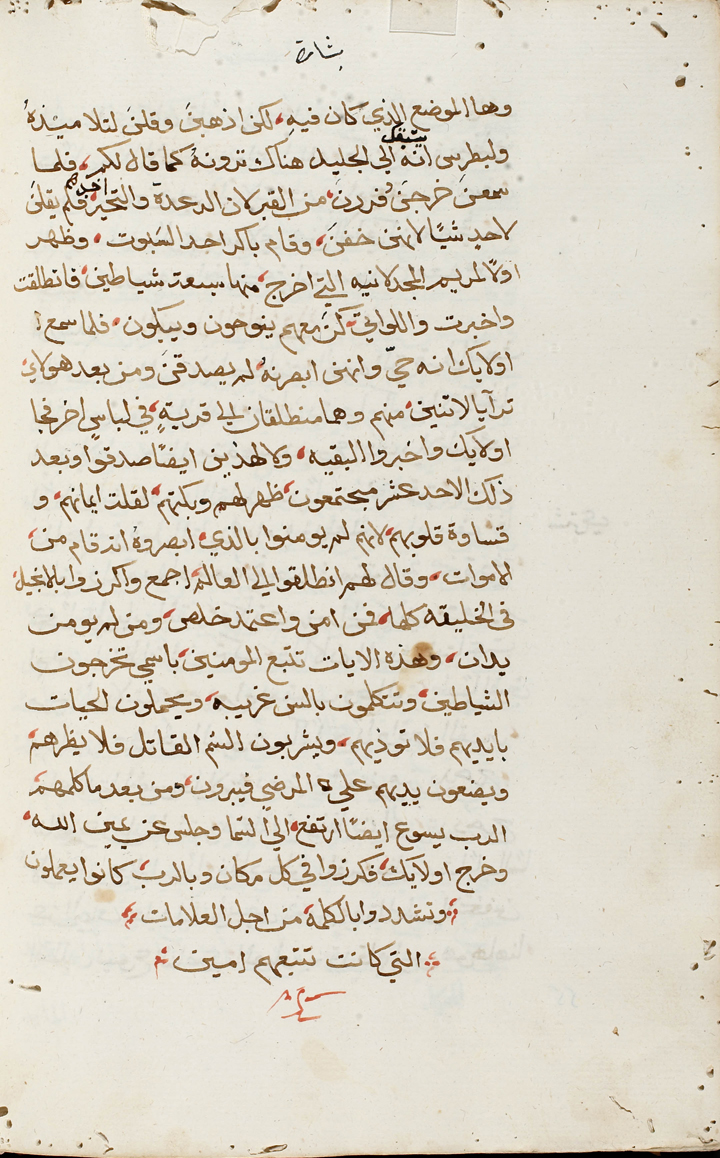 بشارة
وها الموضع الذي كان فيه، لكن اذهبن وقلن لتلاميذه
ولبطرس انه يسبقكم الي الجليل هناك ترونه كما قال لكم، فلما
سمعن خرجن وفررن، من القبر لان الرعدة والتحير اخدهم فلم يقلن
لاحدٍ شيًا لانهن خفن، وقام باكر احد السبوت، وظهر
اولًا لمريم المجدلانيه التي اخرج، منها سبعة شياطين، فانطلقت
واخبرت واللواتي، كن معهم ينوحون ويبكون، فلما سمع
اولايك انه حيّ وانهن ابصرنه، لم يصدقن ومن بعد هولاي،
ترآيا لاتنين، منهم وهما منطلقان الي قريةٍ، في لباسٍ اخر فجا
اولايك واخبروا البقيه، ولا لهذين ايضًا صدقوا وبعد
ذلك الاحد عشر مجتمعون، ظهر لهم وبكتهم، لقلت ايمانهم، و
قساوة قلوبهم، لانهم لم يومنوا بالذي، ابصروه انه قام من،
الاموات، وقال لهم انطلقوا الي العالم، اجمع واكرزوا بالانجيل،
في الخليقه كلها، فمن امن واعتمد خلص، ومن لم يومن
يدان، وهذه الايات تتبع المومنين، باسمي تخرجون
الشياطين، وتتكلمون بالسن غريبه، ويحملون الحيات
بايديهم فلا توذيهم، ويشربون السم القاتل فلا يظرهم
ويضعون يديهم علي المرضي فيبرون، ومن بعد ما كلمهم،
الرب يسوع ايضًا ارتفع، الي السما وجلس عن يمين الله،
وخرج اولايك، فكرزوا في كل مكان وبالرب، كانوا يعملون
وتشددوا بالكلمة، من اجل العلامات
التي كانت تتبعهم امين